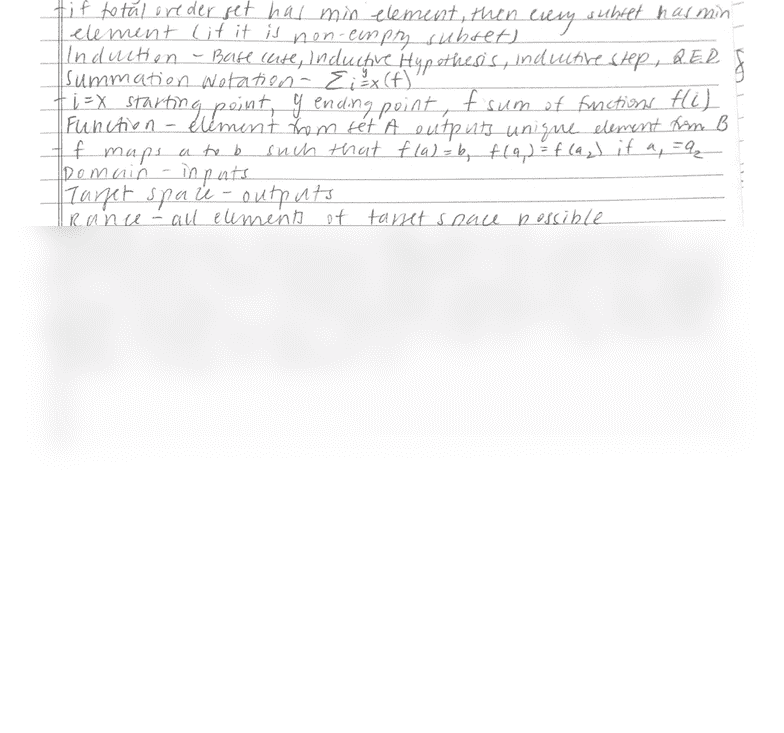 - if total oreder set has min element, then every subset has min
element (if it is non-empty subset)
Induction - Base case, Inductive Hypothesis, inductive step, Q.E.D.
Summation Notation - Σ i=x^y (f)
- i=x starting point, y ending point, f sum of functions f(i)
Function - element from set A outputs unique element from B
- f maps a to b such that f(a)=b, f(a₁)=f(a₂) if a₁=a₂
Domain - inputs
Target space - outputs
Range - all elements of target space possible